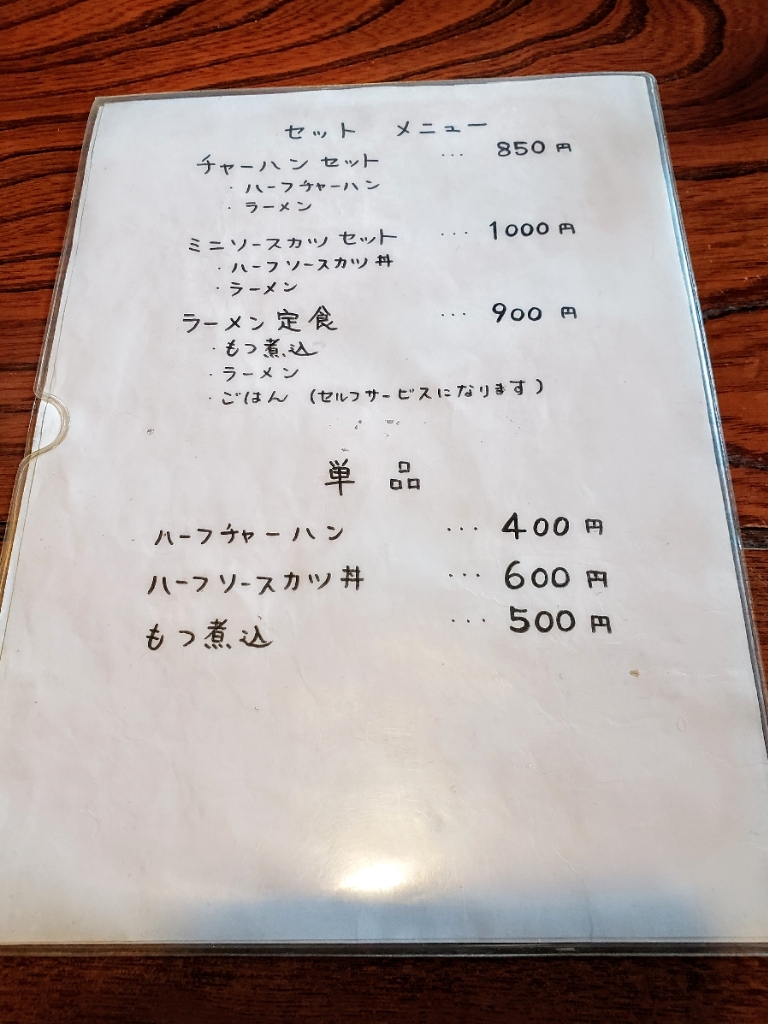 セット メニュー
チャーハン セット ... 850 円
・ハーフチャーハン
・ラーメン
ミニソースカツ セット ... 1000 円
・ハーフソースカツ丼
・ラーメン
ラーメン定食 ... 900 円
・もつ煮込
・ラーメン
・ごはん (セルフサービスになります)
単品
ハーフチャーハン ... 400 円
ハーフソースカツ丼 ... 600 円
もつ煮込 ... 500 円